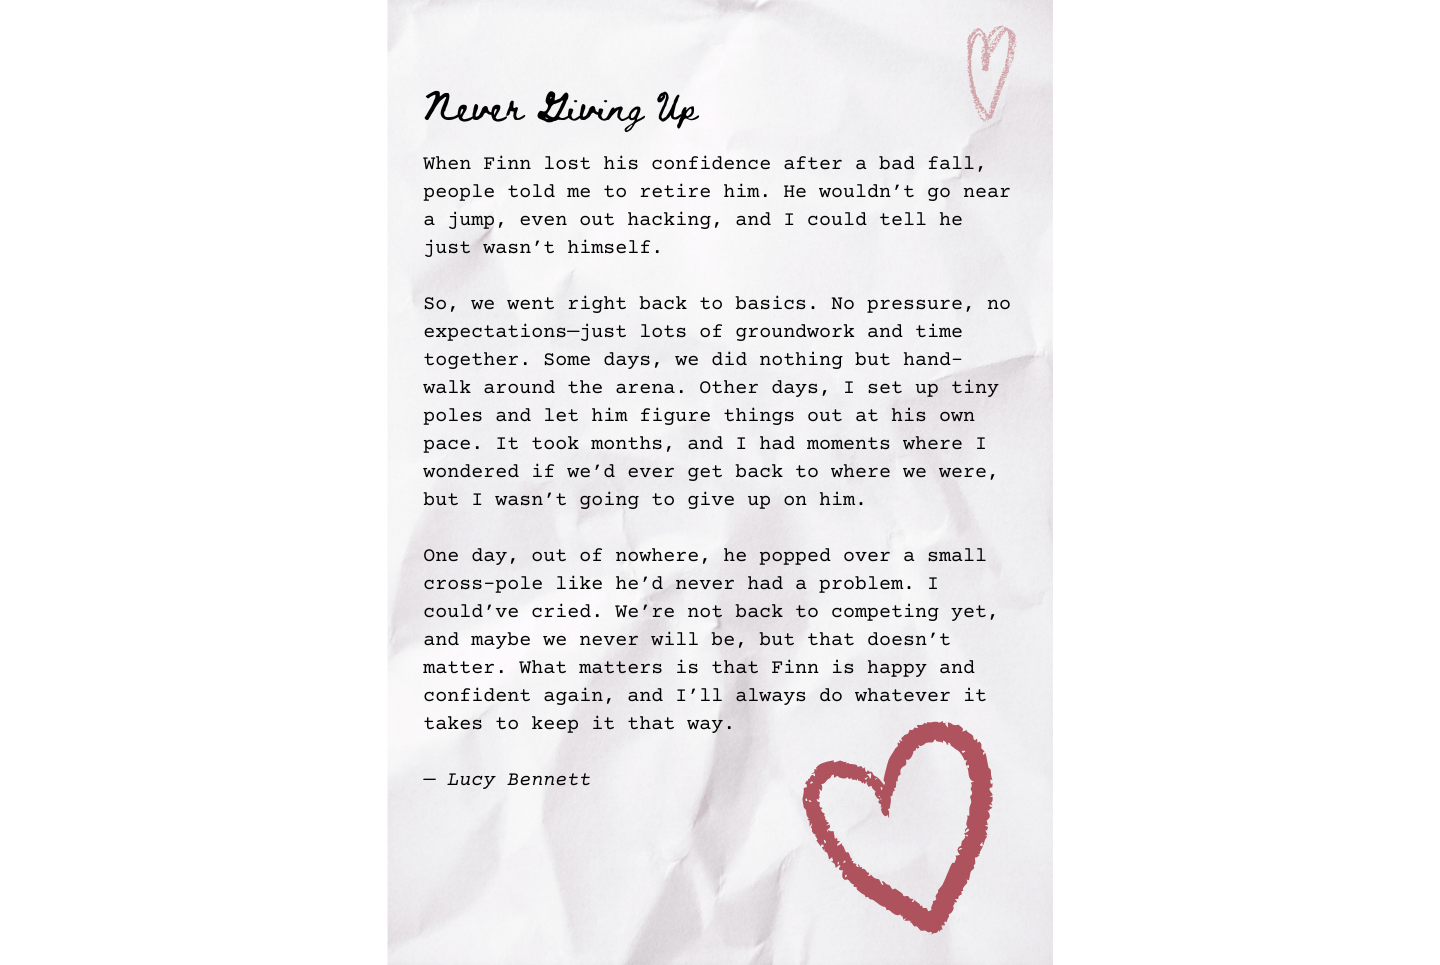 Never Giving Up
When Finn lost his confidence after a bad fall,
people told me to retire him. He wouldn’t go near
a jump, even out hacking, and I could tell he
just wasn’t himself.
So, we went right back to basics. No pressure, no
expectations—just lots of groundwork and time
together. Some days, we did nothing but hand-
walk around the arena. Other days, I set up tiny
poles and let him figure things out at his own
pace. It took months, and I had moments where I
wondered if we’d ever get back to where we were,
but I wasn’t going to give up on him.
One day, out of nowhere, he popped over a small
cross-pole like he’d never had a problem. I
could’ve cried. We’re not back to competing yet,
and maybe we never will be, but that doesn’t
matter. What matters is that Finn is happy and
confident again, and I’ll always do whatever it
takes to keep it that way.
— Lucy Bennett